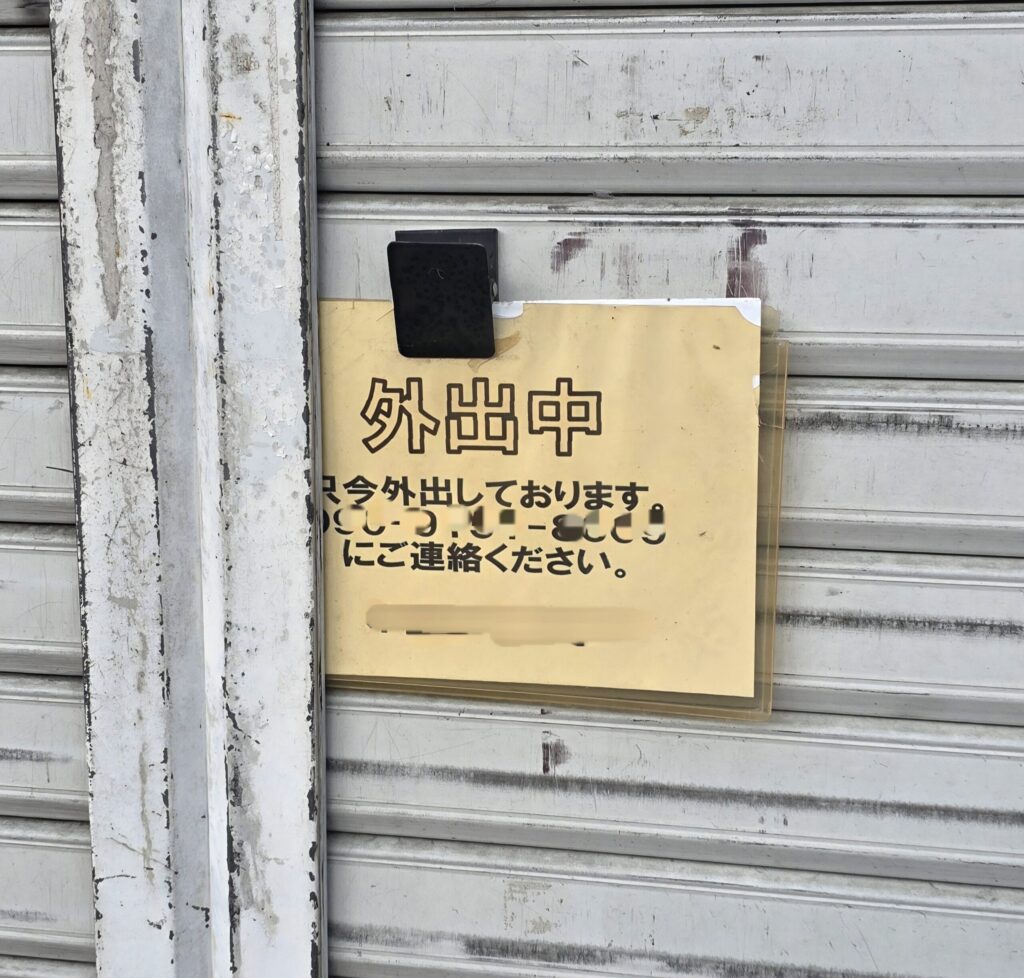 外出中
只今外出しております。
にご連絡ください。